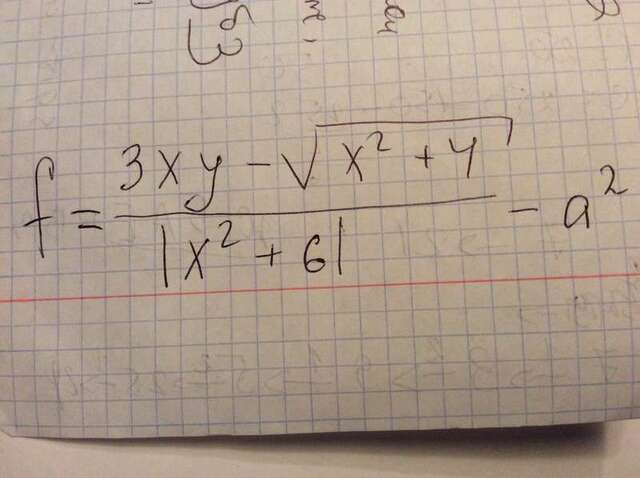 f = \frac{3xy - \sqrt{x^2 + 4}}{|x^2 + 6|} - a^2